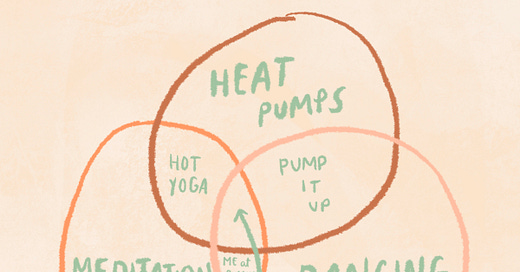 HEAT
PUMPS
HOT
YOGA
PUMP
IT
UP
MEDITATION
ME at
DANCING